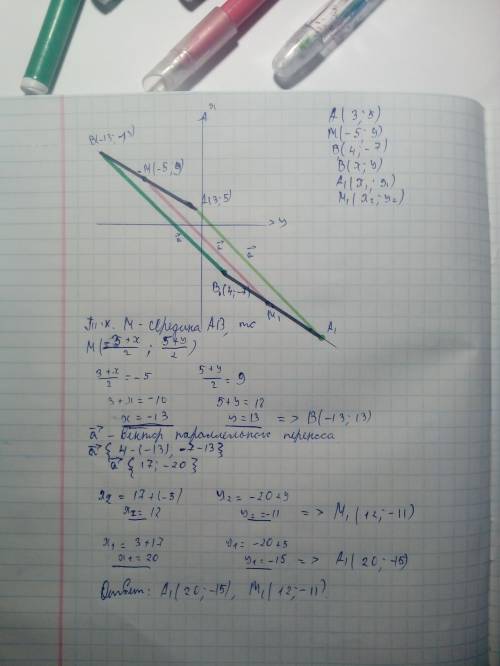 A(3; 5)
M(-5; 9)
B₁(4; -7)
B(x; y)
A₁(x₁; y₁)
M₁(x₂; y₂)
M(-5, 9)
A(3; 5)
a⃗
a⃗
a⃗
B₁(4; -7)
M₁
A₁
Т.к. M - середина AB, то
M(3+x/2 ; 5+y/2)
3+x/2 = -5 5+y/2 = 9
3+x = -10 5+y = 18
x = -13 y = 13 => B(-13; 13)
a⃗ - вектор параллельного переноса
a⃗ {4-(-13), -7-13}
a⃗ {17; -20}
x₂ = 17+(-5) y₂ = -20+9
x₂ = 12 y₂ = -11 => M₁(12; -11)
x₁ = 3+17 y₁ = -20+5
x₁ = 20 y₁ = -15 => A₁(20; -15)
Ответ: A₁(20; -15), M₁(12; -11)